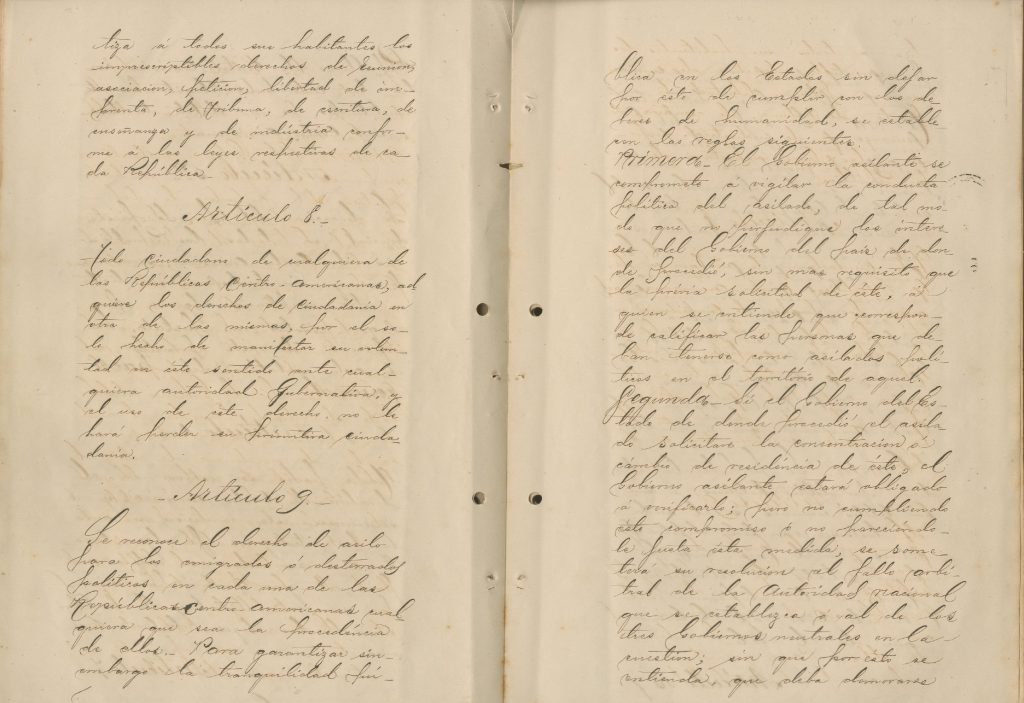 tiza á todos sus habitantes los
imprescriptibles derechos de reunion,
asociacion, peticion, libertad de im-
prenta, de tribuna, de escritura, de
enseñanza y de indústria confor-
me á las leyes respectivas de ca-
da República.-
Artículo 8.-
Todo ciudadano de cualquiera de
las Repúblicas Centro-americanas, ad
quiere los derechos de ciudadanía en
otra de las mismas, por el so-
lo hecho de manifestar su volun-
tad en éste sentido ante cual-
quiera autoridad Gubernativa, y
el uso de este derecho no le
hará perder su primitiva ciuda-
danía.
-Artículo 9.-
Se reconoce el derecho de asilo
para los emigrados ó desterrados
políticos en cada una de las
Repúblicas Centro-americanas cual
quiera que sea la procedéncia
de ellos.- Para garantizar sin-
embargo la tranquilidad pú-
blica en los Estados sin dejar
por éste de cumplir con los de-
beres de humanidad, se estable-
cen las reglas siguientes:
Primera- El Gobierno asilante se
compromete á vigilar la conducta
política del asilado, de tal mo-
do que no perjudique los intere-
ses del Gobierno del país de don-
de procedió, sin mas requisito que
la prévia solicitud de éste, á
quien se entiende que correspon-
de calificar las personas que de-
ban tenerse como asilados polí-
ticos en el território de aquel.
Segunda- Si el Gobierno del Es-
tado de donde procedió el asila
do solicitare la concentracion ó
cámbio de residéncia de éste, el
Gobierno asilante estará obligado
á verificarlo; pero no cumpliendo
éste compromiso ó no pareciéndo-
le justa ésta medida, se some-
terá su resolucion al fallo arbi-
tral de la Autoridad nacional
que se establezca ó al de los
tres Gobiernos neutrales en la
cuestion; sin que por ésto se
entienda, que deba demorarse